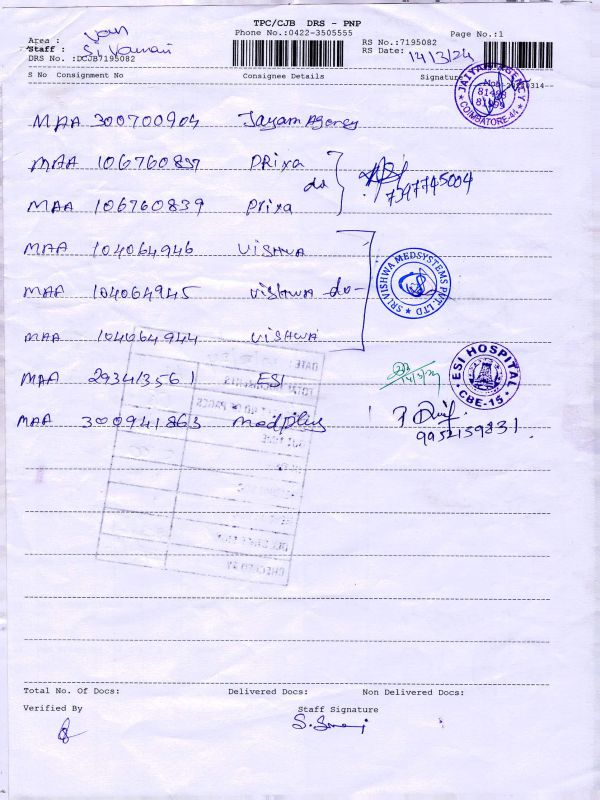 TPC/CJB DRS - PNP
Area : Van
Phone No.:0422-3505555
Page No.:1
Staff :
RS No.:7195082
DRS No. :DCJB7195082
RS Date: 14/3/24
S No Consignment No Consignee Details Signature
JAIYAM AGENCY
COIMBATORE-44
MAA 300700904 Jayam Agency
MAA 106760837 PRiya
do
7397745004
MAA 106760839 Priya
MAA 104064946 VISHWA
MAA 104064945 VISHWA do-
SRI VISHWA MEDSYSTEMS PVT. LTD
MAA 104064944 VISHWA
MAA 293413561 ESI
14/3/24
ESI HOSPITAL
CBE-15
MAA 300941863 Medplus
9952159831
DATE
CHECKED BY
Total No. Of Docs: Delivered Docs: Non Delivered Docs:
Verified By Staff Signature